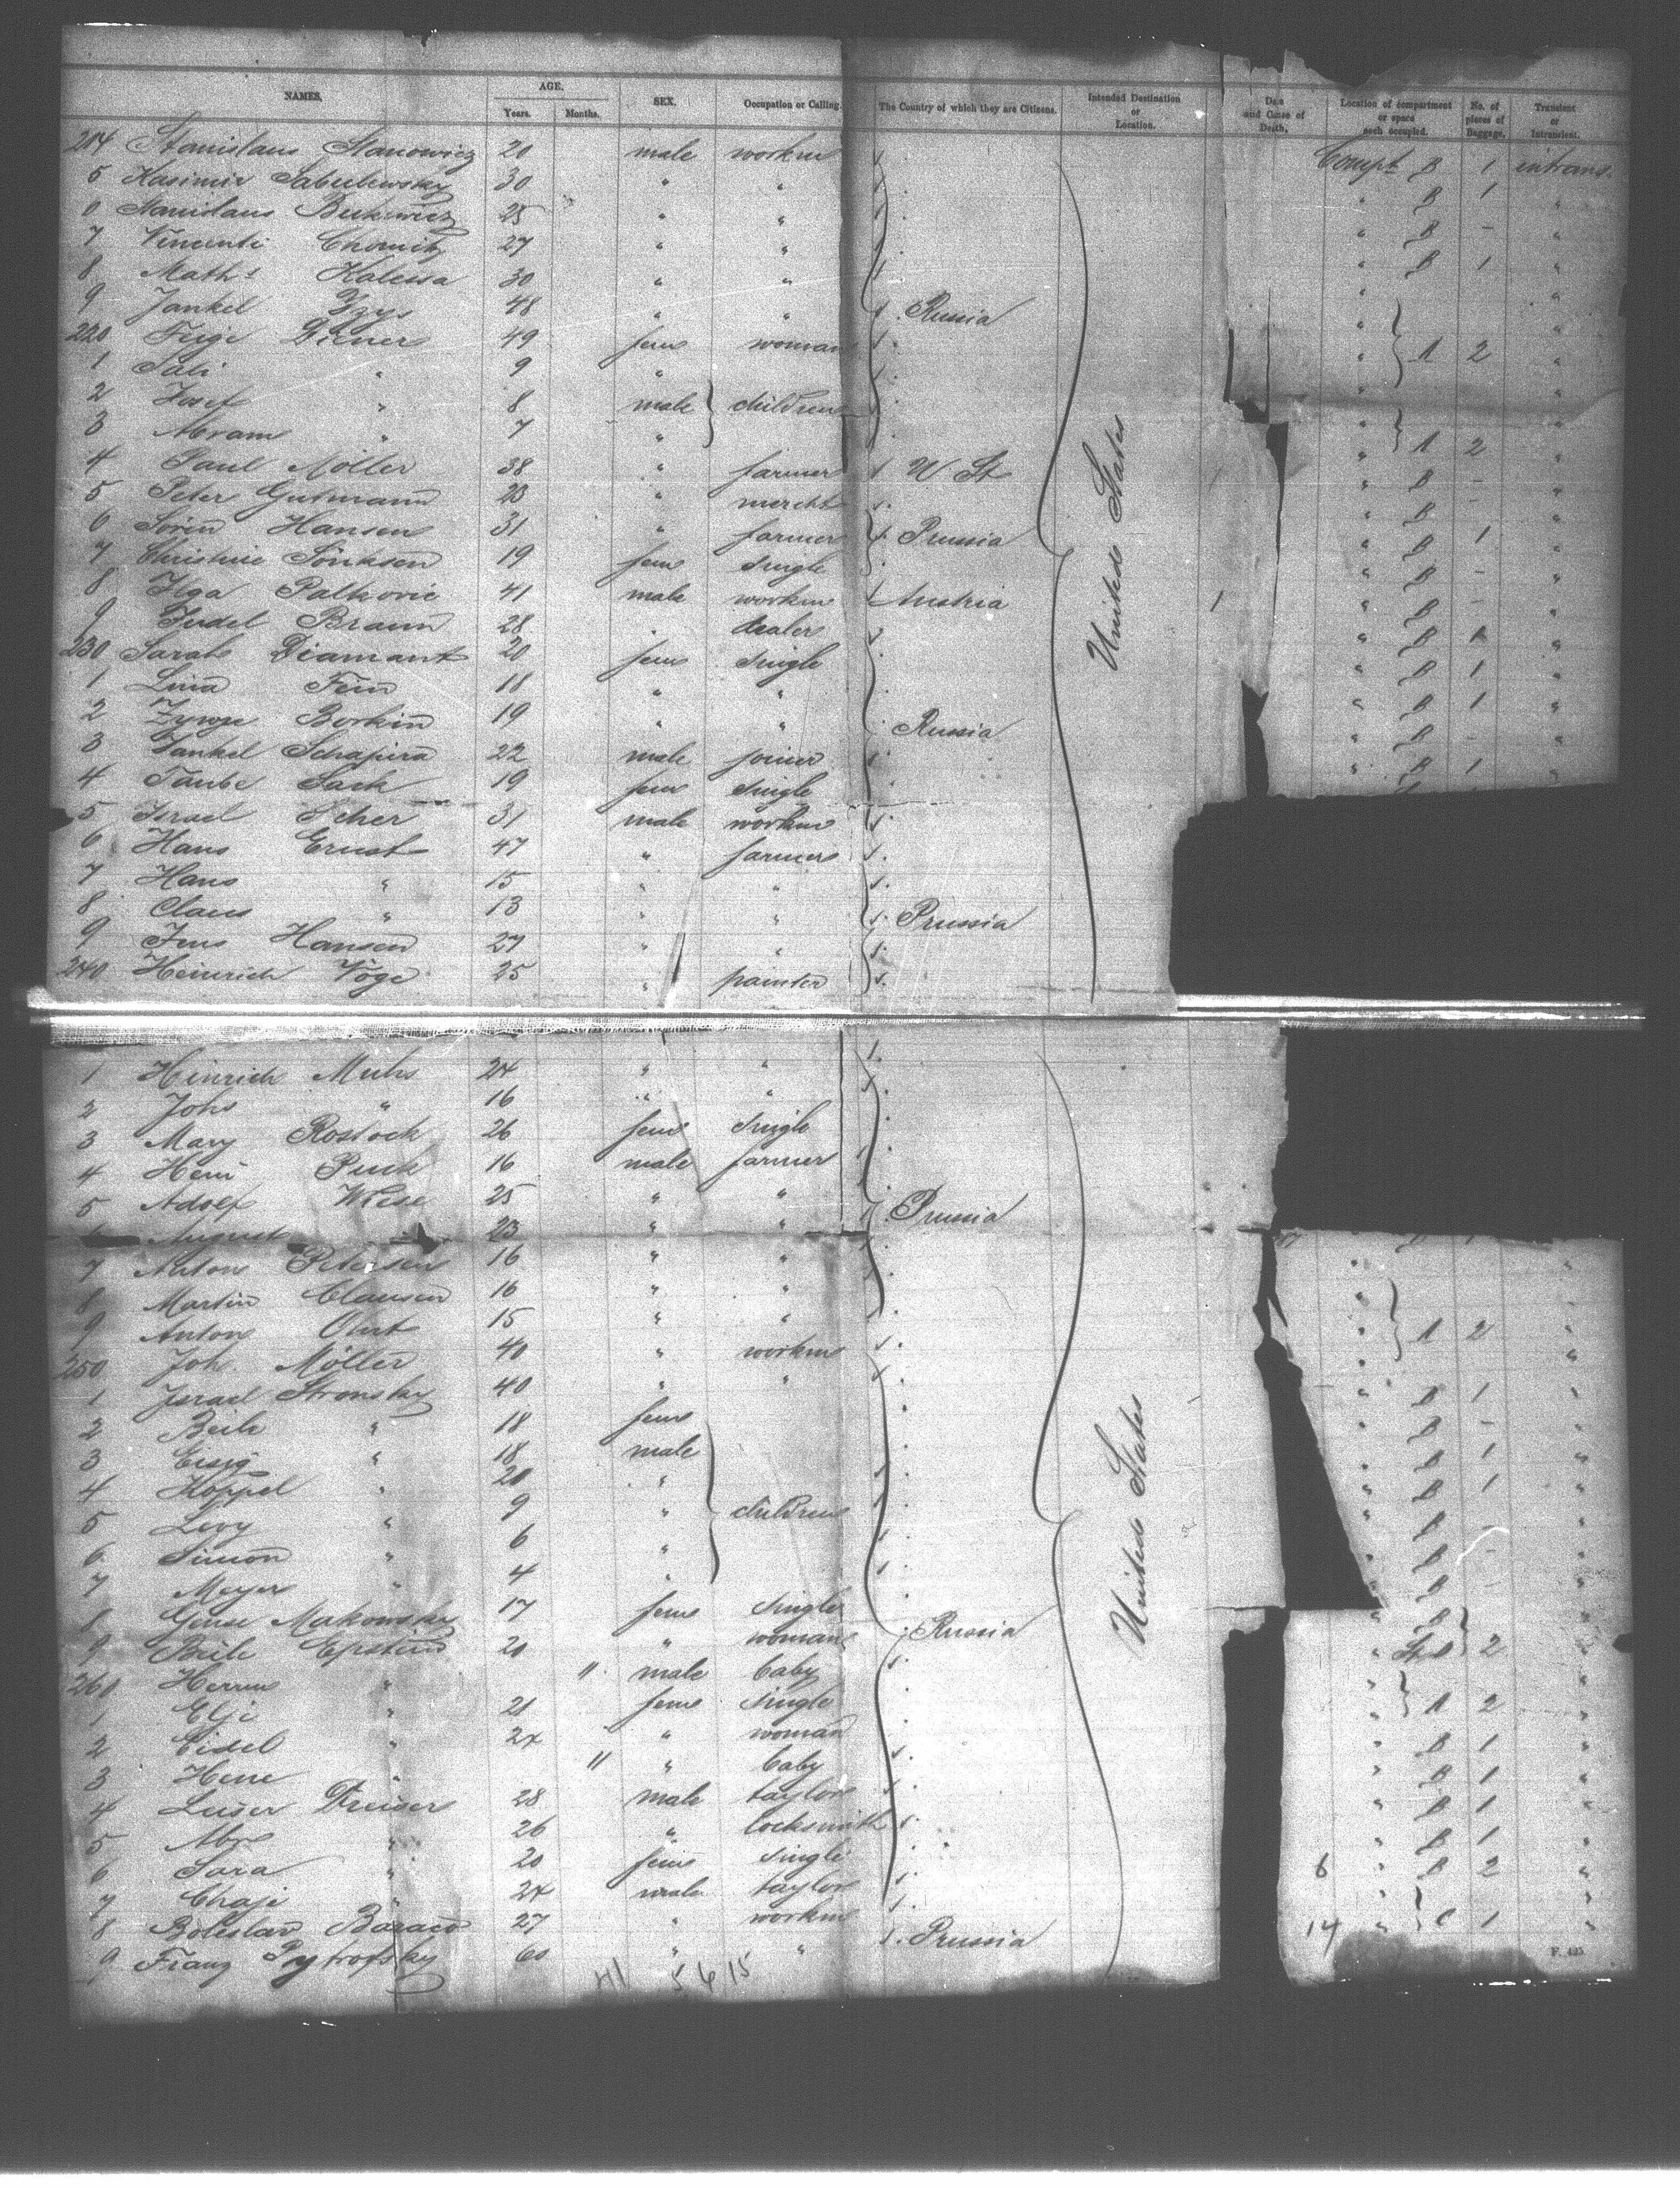 NAMES. AGE. SEX. Occupation or Calling. The Country of which they are Citizens. Intended Destination or Location. Date and Cause of Death. Location of compartment or space each occupied. No. of pieces of Baggage. Transient or Intransient.
Years. Months.
214 Stanislaus Stanowicz 20 male workm Compt B 1 intrans.
5 Kasimir 30 " " " B 1 "
6 Stanislaus 25 " " " B - "
7 Vincenti 27 " " " B 1 "
8 Math's Kalessa 30 " " " "
9 Jankel 48 " " Russia " "
220 Feige 49 fem woman " 1 2 "
1 Sali " 9 " " "
2 Josef " 8 male children " "
3 Abram " 7 " " 1 2 "
4 Paul Möller 38 " farmer U St " B - "
5 Peter Gutmann 23 " mercht " B - "
6 Sören Hansen 31 " farmer Prussia " B 1 "
7 Christine Sönksen 19 fem single " B - "
8 Ilga Palkovic 41 male workm Austria " B - "
9 Judel Braun 28 " dealer " B "
230 Sarah Diamant 20 fem single " B 1 "
1 Lina Fein 18 " " " B 1 "
2 Borkin 19 " " Russia " B - "
3 Jankel Schapira 22 male joiner " B 1 "
4 Taube Sack 19 fem single
5 Israel Scher 31 male workm
6 Hans Ernst 47 " farmer
7 Hans " 15 " "
8 Claus " 13 " " Prussia
9 Jens Hansen 27 " "
240 Heinrich Vöge 25 " painter
United States
1 Hinrich Muhs 24 " "
2 Johs " 16 " "
3 Mary Rostock 26 fem single
4 Hein Puck 16 male farmer
5 Adolf Wiese 25 " " Prussia
August 23 "
7 Anton Petersen 16 " " "
8 Martin Clausen 16 " " "
9 Anton 15 " " " 1 2 "
250 Joh. Möller 40 " workm " "
1 Israel Stronsky 40 " " " B 1 "
2 Beile " 18 fem " B - "
3 Eisig " 18 male " B 1 "
4 Koppel " 20 " " B 1 "
5 Levy " 9 " children " B - "
6 Simon " 6 " " B - "
7 Meyer " 4 " " B - "
8 Makowsky 17 fem single " B "
9 Beile Epstein 20 " woman Russia " 2 "
260 " 11 male baby " "
1 Elje " 21 fem single " 1 2 "
2 Eidel " 24 " woman " B 1 "
3 Hene " 11 " baby " B 1 "
4 Leiser 28 male taylor " B 1 "
5 " 26 " locksmith " B 1 "
6 Sara " 20 fem single 6 " B 2 "
7 Chaje " 24 male taylor " "
8 Boleslav 27 " workm 14 " 1 "
9 Franz Pytrofsky 60 " " Prussia
United States